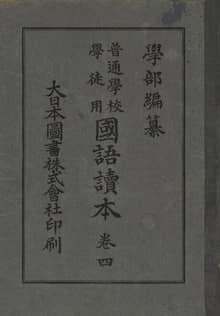 學部編纂
普通學校
學徒用
國語讀本 卷四
大日本圖書株式會社印刷